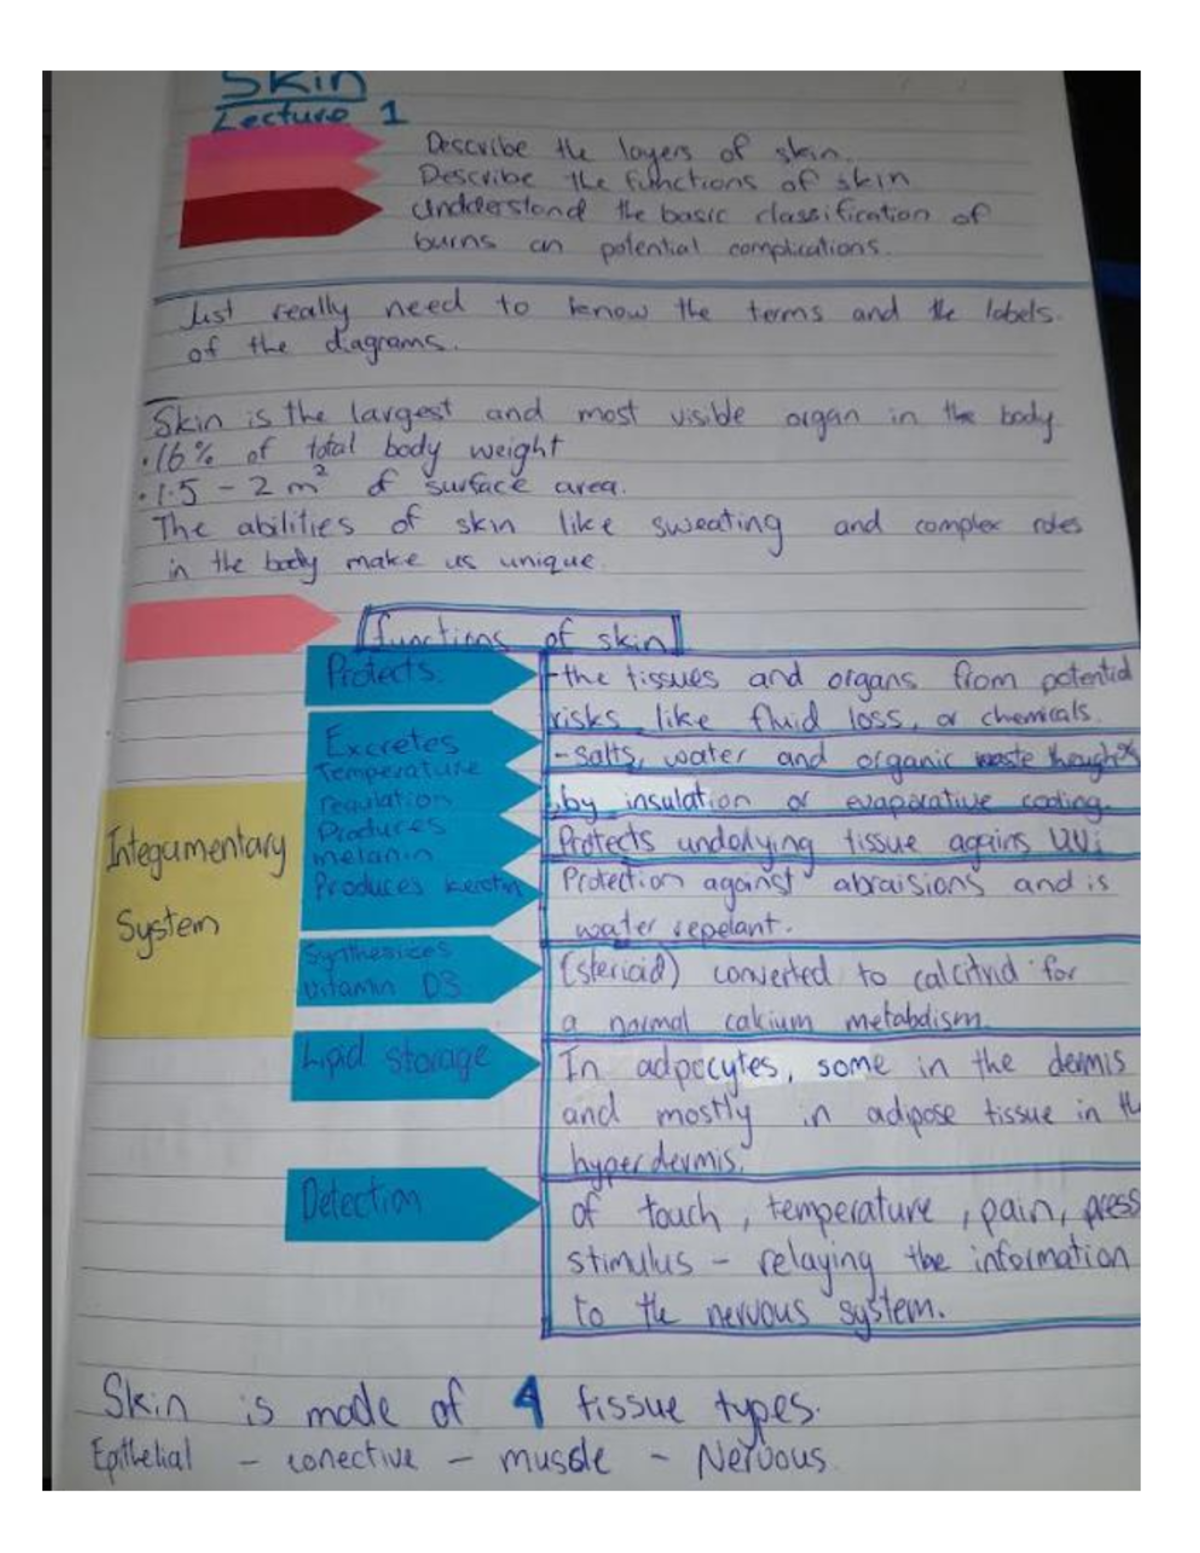 Skin
Lecture 1
Describe the layers of skin.
Describe the functions of skin
Undderstand the basic classification of
burns an potential complications.
Just really need to know the terms and the labels.
of the diagrams.
Skin is the largest and most visible organ in the body
• 16% of total body weight
• 1.5 - 2 m² of surface area.
The abilities of skin like sweating and complex roles
in the body make us unique.
functions of skin
Integumentary
System
Protects.
- the tissues and organs from potential
risks like fluid loss, or chemicals.
Excretes
- Salts, water and organic waste
Temperature
regulation
by insulation or evaporative cooling.
Produces
melanin
Protects underlying tissue agains UV
Produces keratin
Protection against abraisions and is
water repelant.
Synthesices
vitamin D3
(sterioid) converted to for
a normal calcium metabolism.
Lipid storage
In adpocytes, some in the dermis
and mostly in adipose tissue in
hyperdermis.
Detection
of touch, temperature, pain, press
stimulus - relaying the information
to the nervous system.
Skin is made of 4 tissue types.
Epithelial - conective - muscle - Nervous